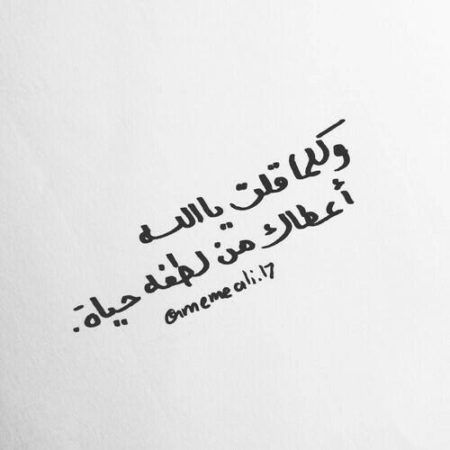 وكلما قلت ياالله
أعطاك من لطفه حياة.
@memeali.17